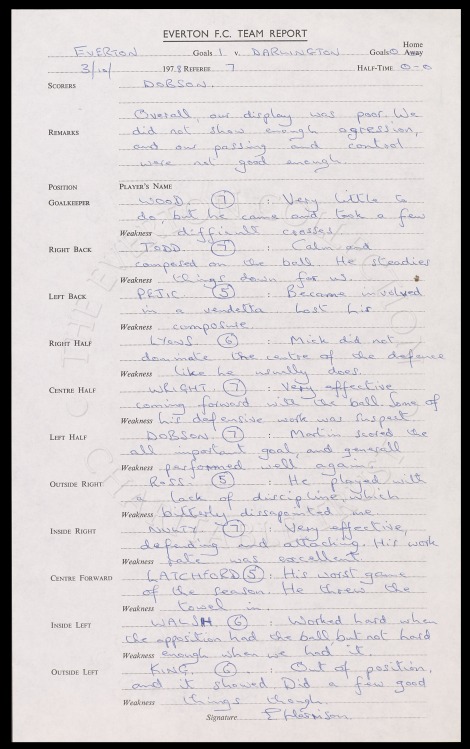 EVERTON F.C. TEAM REPORT
EVERTON Goals 1 v. DARLINGTON Goals 0 Home Away
3/10/ 1978 REFEREE 7 HALF-TIME 0-0
SCORERS DOBSON.
Overall, our display was poor. We
REMARKS did not show enough agression,
and our passing and control
were not good enough
POSITION PLAYER'S NAME
GOALKEEPER WOOD. 7 : Very little to
do, but he came and took a few
Weakness difficult crosses.
RIGHT BACK TODD. 7 : Calm and
composed on the ball. He steadies
Weakness things down for us.
LEFT BACK PEJIC. 5 : Became involved
in a vendetta Lost his
Weakness composure.
RIGHT HALF LYONS 6 : Mick did not
dominate the centre of the defence
Weakness like he usually does.
CENTRE HALF WRIGHT. 7 : Very effective
coming forward with the ball Some of
Weakness his defensive work was suspect
LEFT HALF DOBSON. 7 : Martin scored the
all important goal, and generall
Weakness performed well again.
OUTSIDE RIGHT ROSS. 5 : He played with
a lack of discipline, which
Weakness bitterly dissapointed me
INSIDE RIGHT NULTY. 7 : Very effective,
defending and attaching. His work
Weakness rate was excellent.
CENTRE FORWARD LATCHFORD 5 : His worst game
of the season. He threw the
Weakness towel in.
INSIDE LEFT WALSH 6 : Worked hard when
the opposition had the ball, but not hard
Weakness enough when we had it.
OUTSIDE LEFT KING. 6 : Out of position,
and it showed. Did a few good
Weakness things though.
Signature E Harrison